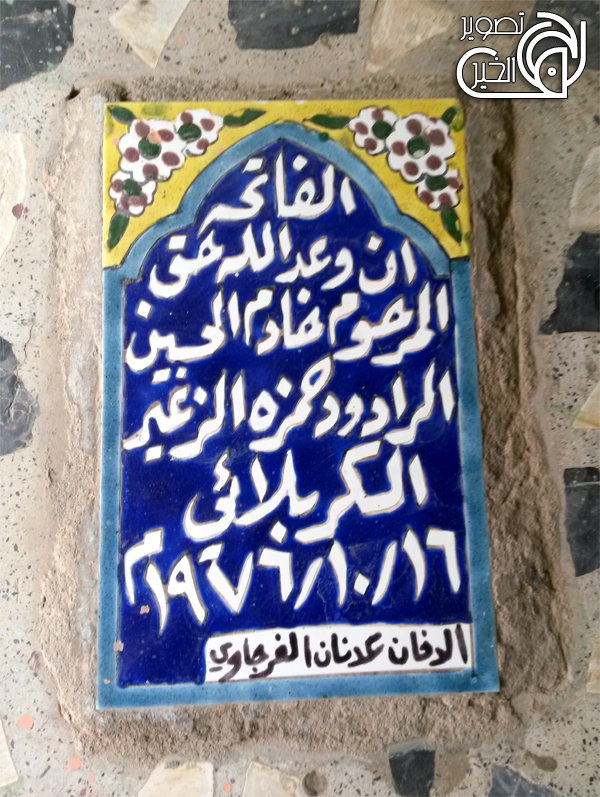 تصوير
الخير
الفاتحه
ان وعد الله حق
المرحوم خادم الحسين
الرادود حمزه الزغير
الكربلائي
١٩٧٦/١٠/١٦م
الدفان عدنان الغرجاوي